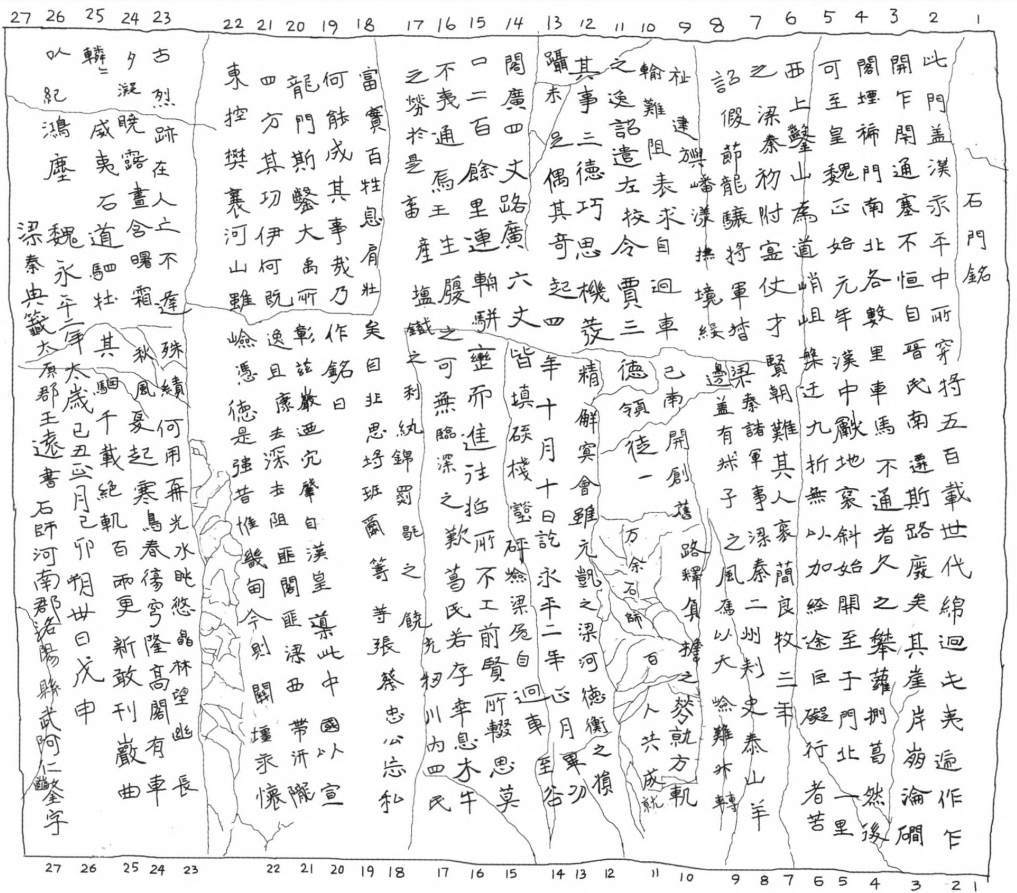 27 26 25 24 23 22 21 20 19 18 17 16 15 14 13 12 11 10 9 8 7 6 5 4 3 2 1
石門銘
此門盖漢永平中所穿将五百載世代綿迴屯夷遞作乍
開乍閇通塞不恒自晋氏南遷斯路廢矣其崖岸崩淪磵
閣堙褊門南北各數里車馬不通者久之攀蘿捫葛然後
可至皇魏正始元年漢中獻地褒斜始開至于門北一里
西上鑿山為道峭岨槃迂九折無以加経途巨礙行者苦
之梁秦初附寔仗才賢朝難其人褒蕳良牧三年
詔假節龍驤将軍督梁秦諸軍事梁秦二州刺史泰山羊
祉建旟嶓漾撫境綏邊盖有叔子之風焉以天嶮難升轉
輸難阻表求自迴車已南開創舊路釋負擔之勞就方軌
之逸詔遣左校令賈三德領徒一万余石師百人共成就
其事三德巧思機發精解冥會雖元凱之梁河德衡之損
躡未足偶其奇起四年十月十日訖永平二年正月畢功
閣廣四丈路廣六丈皆填磎棧壑砰嶮梁危自迴車至谷
口二百餘里連輈騈轡而進往哲所不工前賢所輟思莫
不夷通焉王生履之可無臨深之歎葛氏若存幸息木牛
之勞於是畜産塩鐵之利紈錦罽毼之饒充牣川内四民
富實百牲息肩壯矣自非思埒班爾筹等張蔡忠公忘私
何能成其事哉乃作銘曰
龍門斯鑿大禹所彰兹巌迺穴肇自漢皇導此中國以宣
四方其功伊何既逸且康去深去阻匪閣匪梁西带汧隴
東控樊襄河山雖嶮憑德是强昔惟畿甸今則關壃永懷
古烈跡在人亡不逢殊績何用再光水眺悠晶林望幽長
夕凝曉露晝含曙霜秋風夏起寒鳥春傷穹隆高閣有車
轔〻威夷石道駟牡其駰千載絶軌百兩更新敢刊巌曲
以紀鴻塵魏永平二年太歲己丑正月己卯朔卅日戊申
梁秦典籖太原郡王遠書石師河南郡洛陽縣武阿仁鑿字
27 26 25 24 23 22 21 20 19 18 17 16 15 14 13 12 11 10 9 8 7 6 5 4 3 2 1